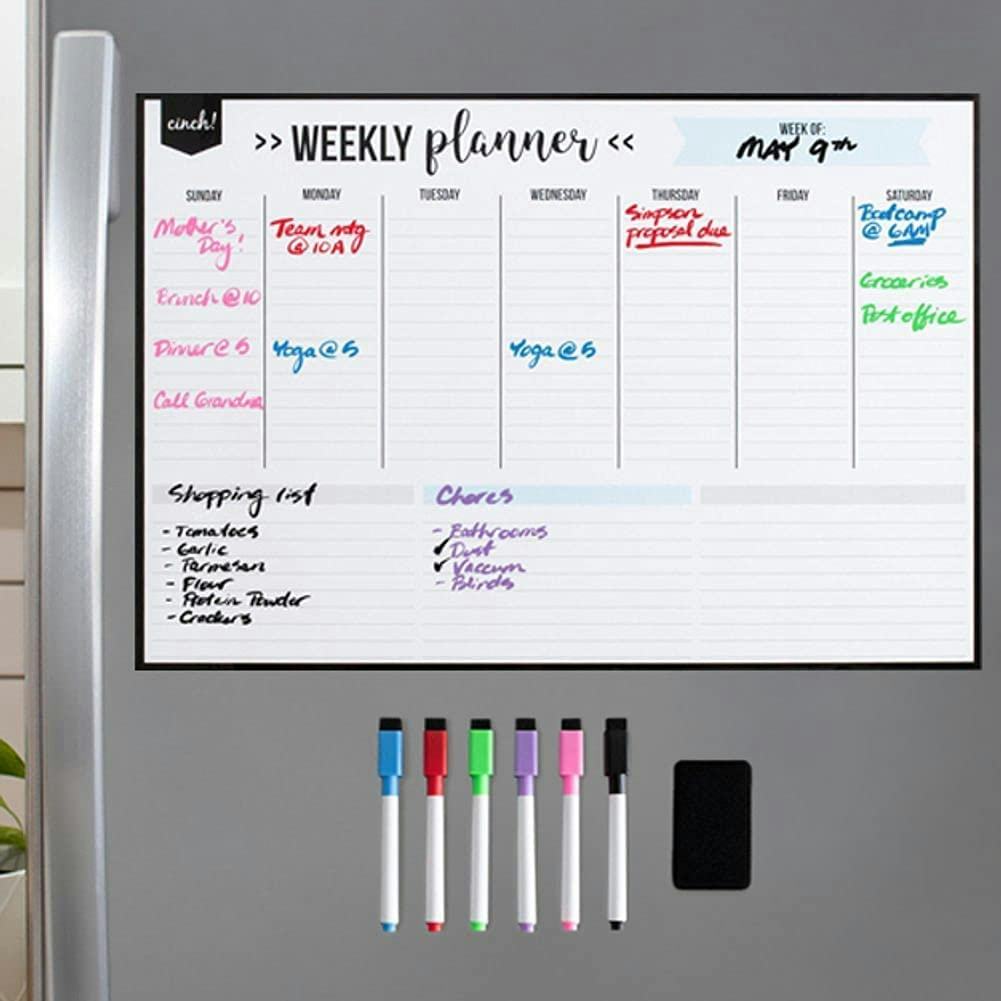 cinch!
>> WEEKLY planner <<
WEEK OF:
MAY 9th
SUNDAY MONDAY TUESDAY WEDNESDAY THURSDAY FRIDAY SATURDAY
Mother's
Day!
Brunch @ 10
Dinner @ 5
Call Grandma
Team mtg
@ 10A
Yoga @ 5
Yoga @ 5
Simpson
proposal due
Bootcamp
@ 6AM
Groceries
Post office
Shopping list
- Tomatoes
- Garlic
- Parmesan
- Flour
- Protein Powder
- Crackers
Chores
- Bathrooms
✓ Dust
✓ Vaccum
- Blinds